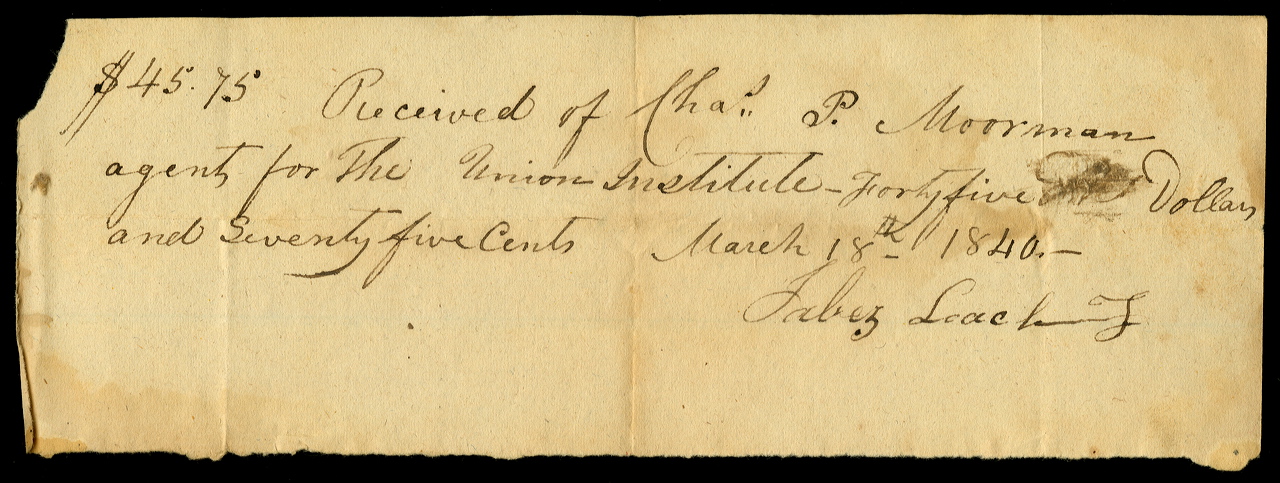 $45.75 Received of Chas. P. Moorman
agent for The Union Institute - Fortyfive Dollars
and Seventyfive Cents March 18th 1840. -
Jabez Leach